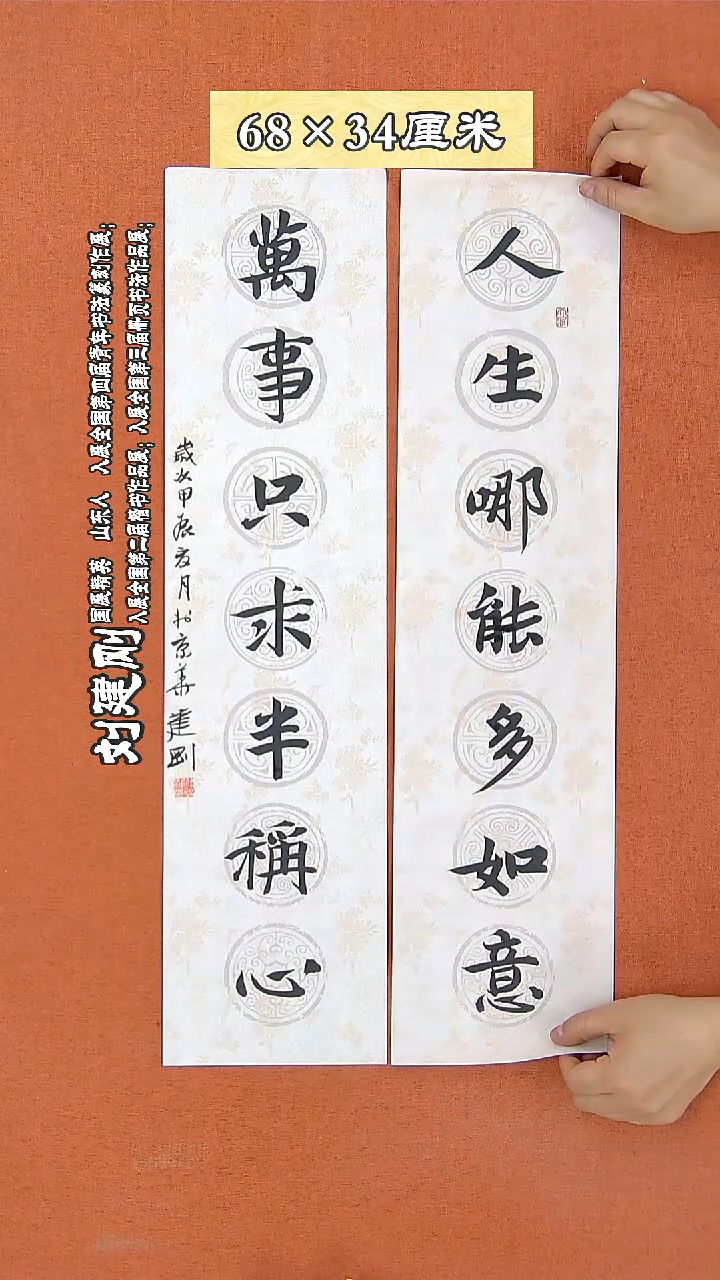 68×34厘米
人生哪能多如意
萬事只求半稱心
歲次甲辰夏月於京華建刚
刘建刚
国展精英 山东人 入展全国第四届青年书法篆刻作展;
入展全国第二届楷书作品展; 入展全国第三届册页书法作品展;